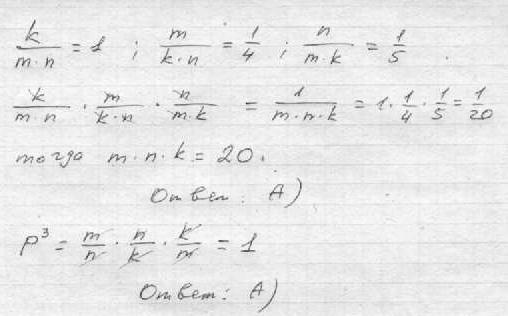 k/(m·n) = 1 ; m/(k·n) = 1/4 ; n/(m·k) = 1/5 .
k/(m·n) · m/(k·n) · n/(m·k) = 1/(m·n·k) = 1·1/4·1/5 = 1/20
тогда m·n·k = 20.
Ответ: А)
p³ = m/n · n/k · k/m = 1
Ответ: А)